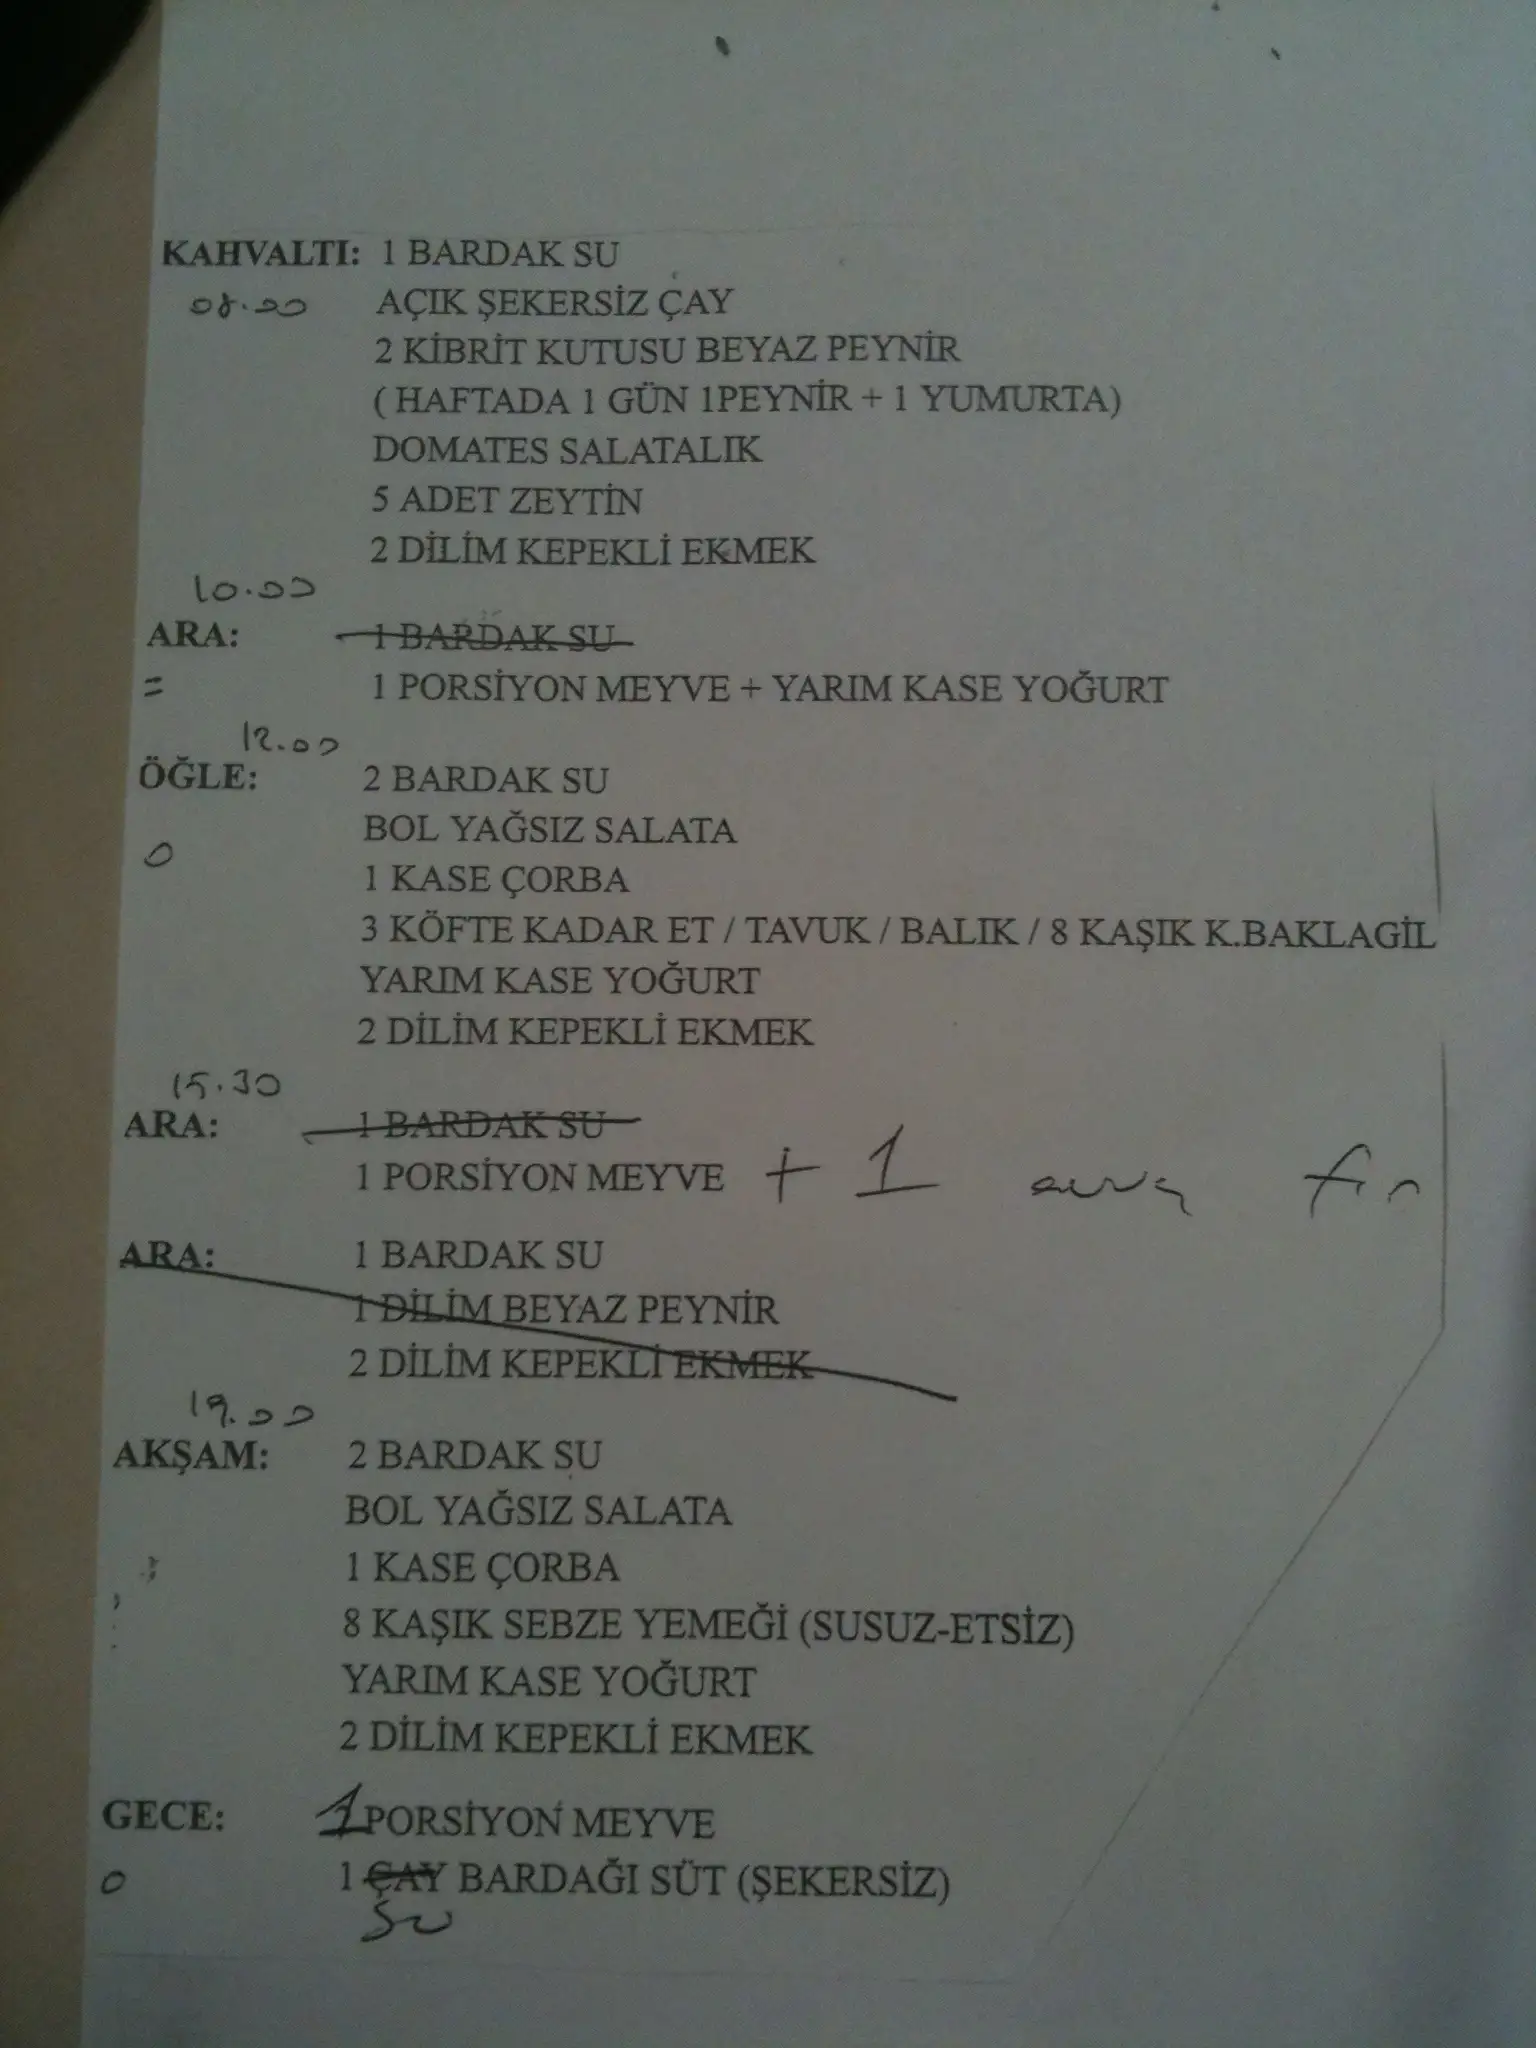 KAHVALTI: 1 BARDAK SU
08.00 AÇIK ŞEKERSİZ ÇAY
2 KİBRİT KUTUSU BEYAZ PEYNİR
( HAFTADA 1 GÜN 1PEYNİR + 1 YUMURTA)
DOMATES SALATALIK
5 ADET ZEYTİN
2 DİLİM KEPEKLİ EKMEK
10.00
ARA: 1 BARDAK SU
= 1 PORSİYON MEYVE + YARIM KASE YOĞURT
12.00
ÖĞLE: 2 BARDAK SU
BOL YAĞSIZ SALATA
0
1 KASE ÇORBA
3 KÖFTE KADAR ET / TAVUK / BALIK / 8 KAŞIK K.BAKLAGİL
YARIM KASE YOĞURT
2 DİLİM KEPEKLİ EKMEK
15.30
ARA: 1 BARDAK SU
1 PORSİYON MEYVE + 1
ARA: 1 BARDAK SU
1 DİLİM BEYAZ PEYNİR
2 DİLİM KEPEKLİ EKMEK
19.00
AKŞAM: 2 BARDAK SU
BOL YAĞSIZ SALATA
1 KASE ÇORBA
8 KAŞIK SEBZE YEMEĞİ (SUSUZ-ETSİZ)
YARIM KASE YOĞURT
2 DİLİM KEPEKLİ EKMEK
GECE: 1 PORSİYON MEYVE
0 1 ÇAY BARDAĞI SÜT (ŞEKERSİZ)
Su